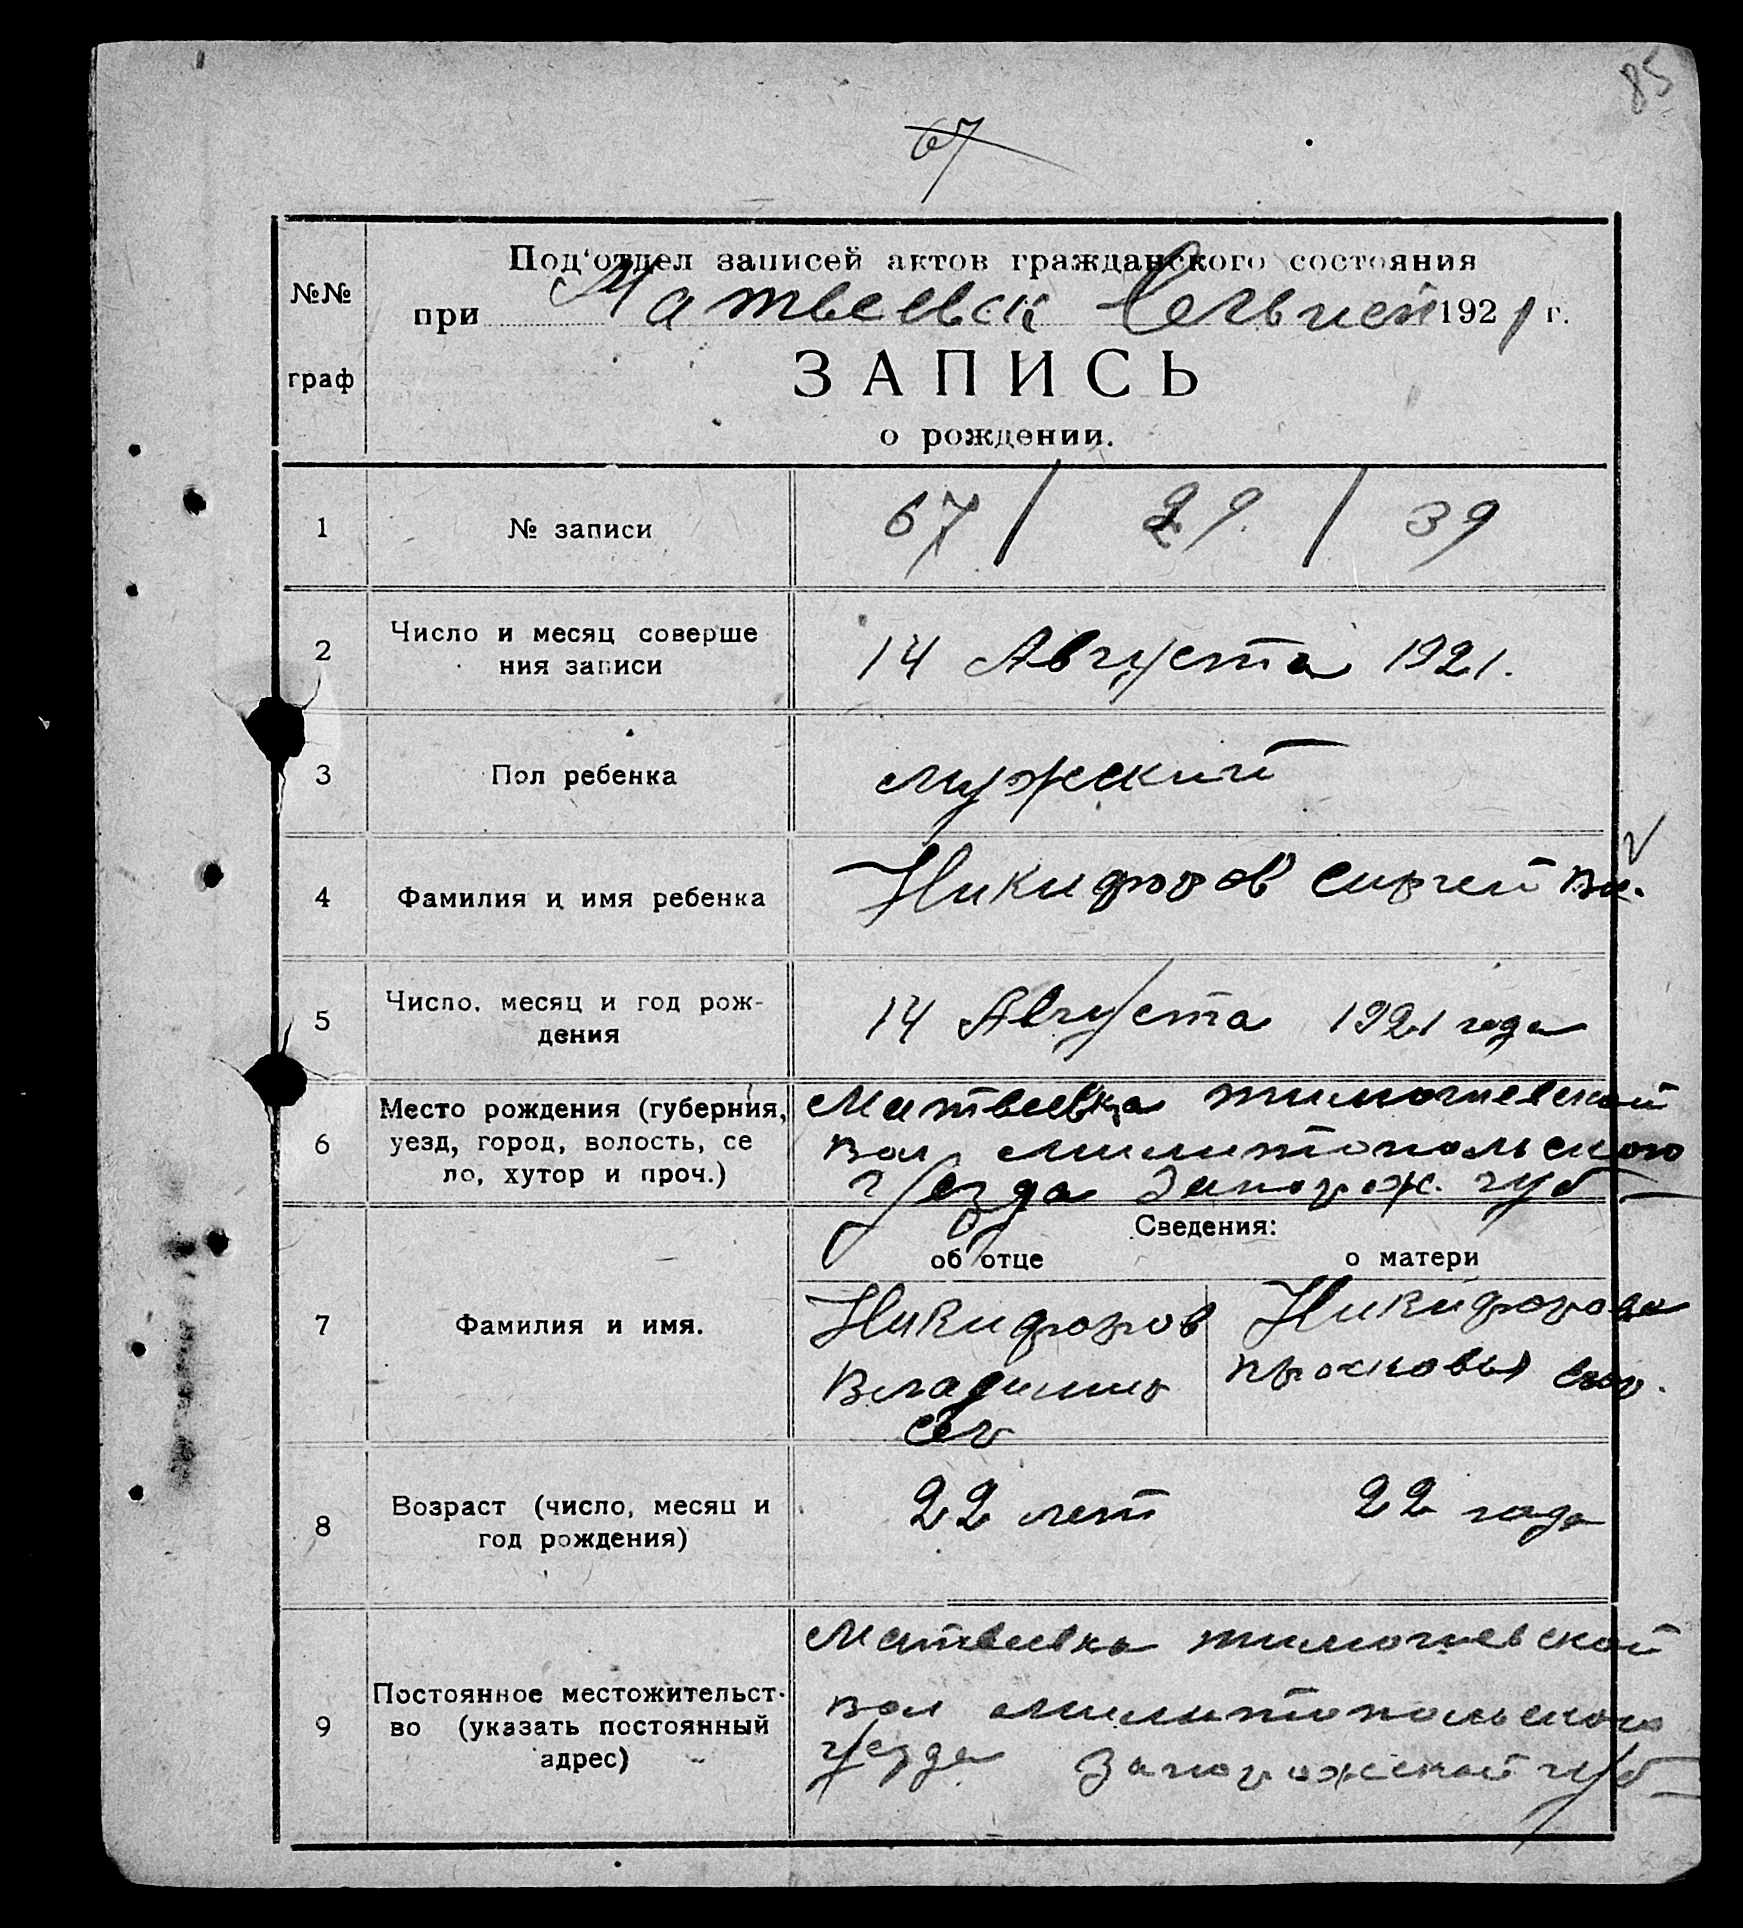 85
67
Под'отдел записей актов гражданского состояния
№№
граф
при Матвеевск 1921 г.
ЗАПИСЬ
о рождении.
1 № записи 67 / 29 / 39
2 Число и месяц соверше
ния записи
14 Августа 1921.
3 Пол ребенка мужский
4 Фамилия и имя ребенка Никифоров Сиргей Вл.
5 Число, месяц и год рож-
дения
14 Августа 1921 года
6 Место рождения (губерния,
уезд, город, волость, се
ло, хутор и проч.)
Матвеевка тимошевской
вол милитопольского
уезда Запорож. губ
Сведения:
об отце о матери
7 Фамилия и имя.
Никифоров
Владимир
Никифорова
прасковья
8 Возраст (число, месяц и
год рождения)
22 лет 22 года
9 Постоянное местожительст-
во (указать постоянный
адрес)
Матвеевка тимошевской
вол милитопольского
уезда Запорожской губ